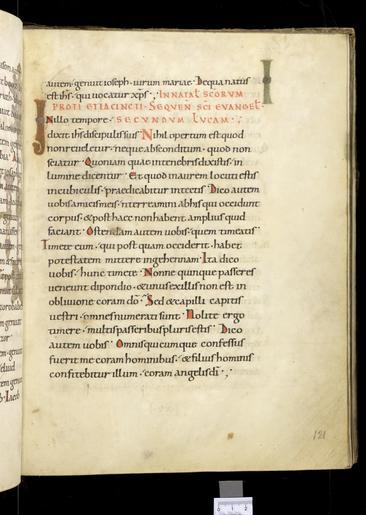 autem genuit ioseph · uirum mariae · De qua natus
est ihs · qui uocatur xps · IN NATAL SCORUM
PROTI ET IACINCTI · SEQUEN SCI EUANGEL
In illo tempore · SECUNDUM LUCAM ·
dixit ihs discipulis suis Nihil opertum est quod
non reueletur · neque absconditum · quod non
sciatur · Quoniam quae in tenebris dixistis · in
lumine dicentur · Et quod in aurem locuti estis
in cubiculis · praedicabitur in tectis · Dico autem
uobis amicis meis · ne terreamini ab his qui occidunt
corpus · & post haec non habent amplius quid
faciant · Ostendam autem uobis · quem timeatis
Timete eum · qui post quam occiderit · habet
potestatem mittere in gehennam · Ita dico
uobis · hunc timete · Nonne quinque passeres
ueneunt dipondio · & unus ex illis non est in
obliuione coram do · Sed & capilli capitis
uestri · omnes numerati sunt · Nolite ergo
timere · multis passeribus pluris estis · Dico
autem uobis · Omnis quicumque confessus
fuerit me coram hominibus · & filius hominis
confitebitur illum · coram angelis di ·
121